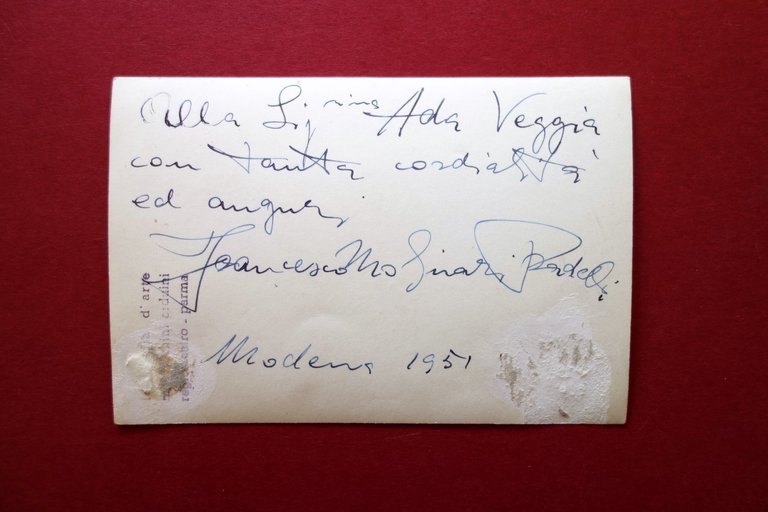 Alla Sig.rina Ada Veggia
con tanta cordialità
ed auguri
Francesco Molinari Pradelli
Modena 1951
d'arte
parma